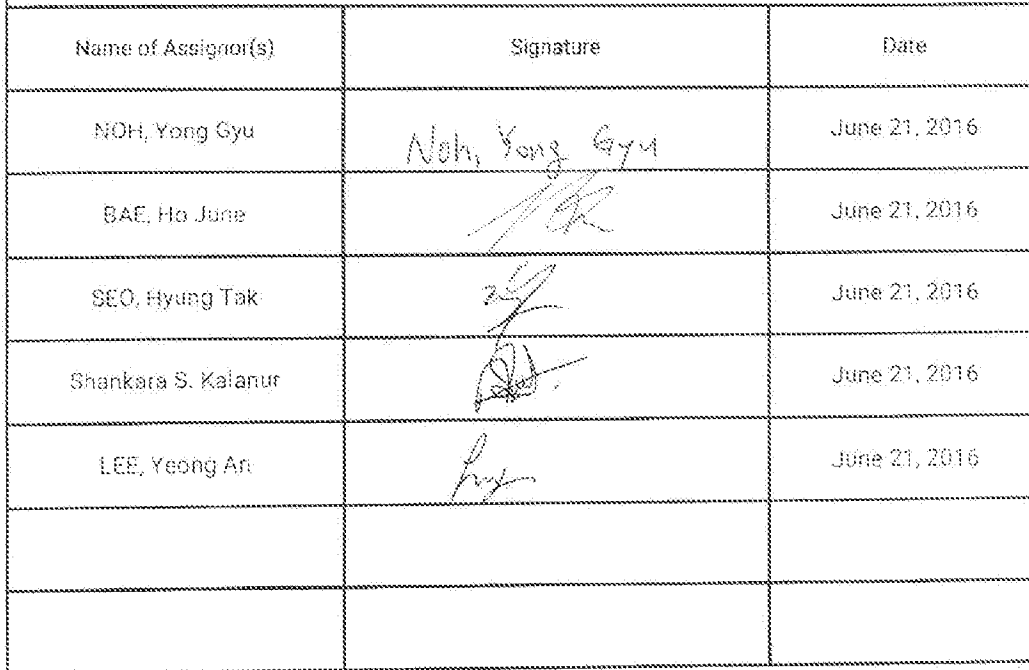 Name of Assignor(s) Signature Date
NOH, Yong Gyu Noh, Yong Gyu June 21, 2016
BAE, Ho June June 21, 2016
SEO, Hyung Tak June 21, 2016
Shankara S. Kalanur June 21, 2016
LEE, Yeong An June 21, 2016